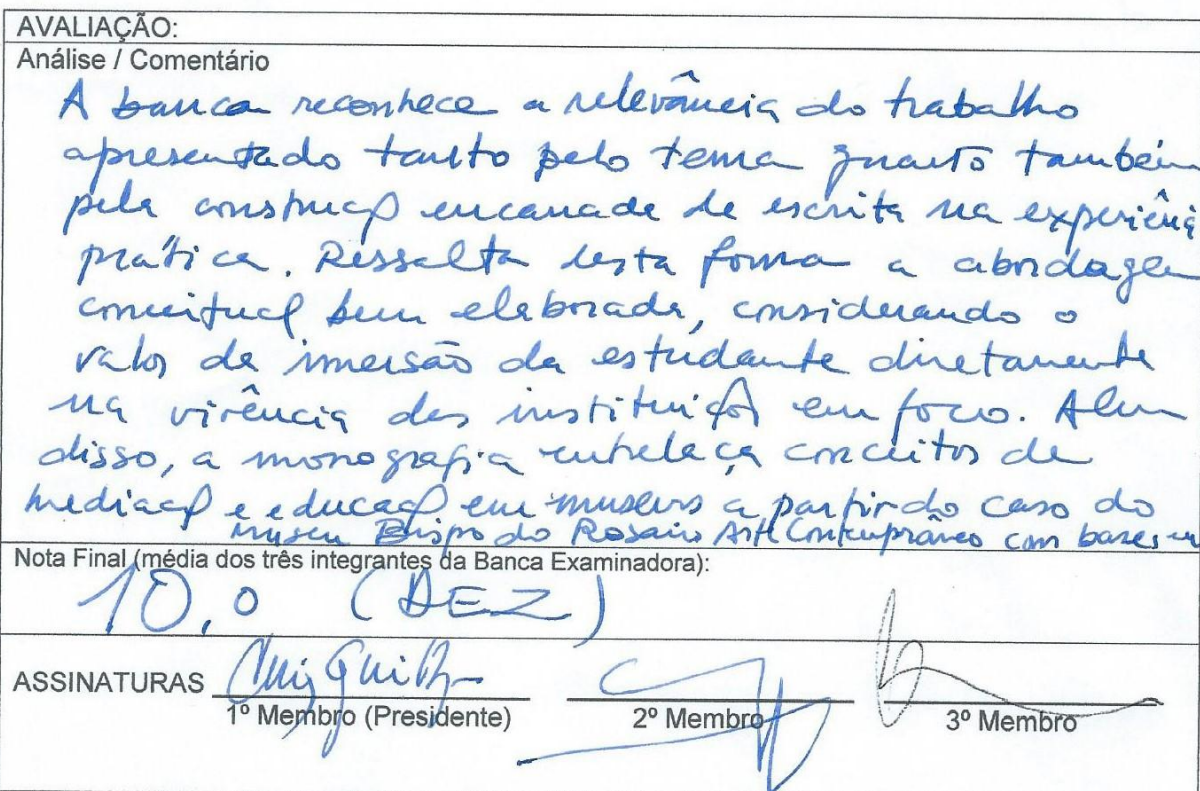 AVALIAÇÃO:
Análise / Comentário
A banca reconhece a relevância do trabalho
apresentado tanto pelo tema quanto também
pela construção encarnada de escrita na experiência
prática. Ressalta desta forma a abordagem
conceitual bem elaborada, considerando o
valor da imersão da estudante diretamente
na vivência das instituições em foco. Alem
disso, a monografia entrelaça conceitos de
mediação e educação em museus a partir do caso do
Museu Bispo do Rosario Arte Contemporâneo com bases
Nota Final (média dos três integrantes da Banca Examinadora):
10,0 (DEZ)
ASSINATURAS
1º Membro (Presidente) 2º Membro 3º Membro